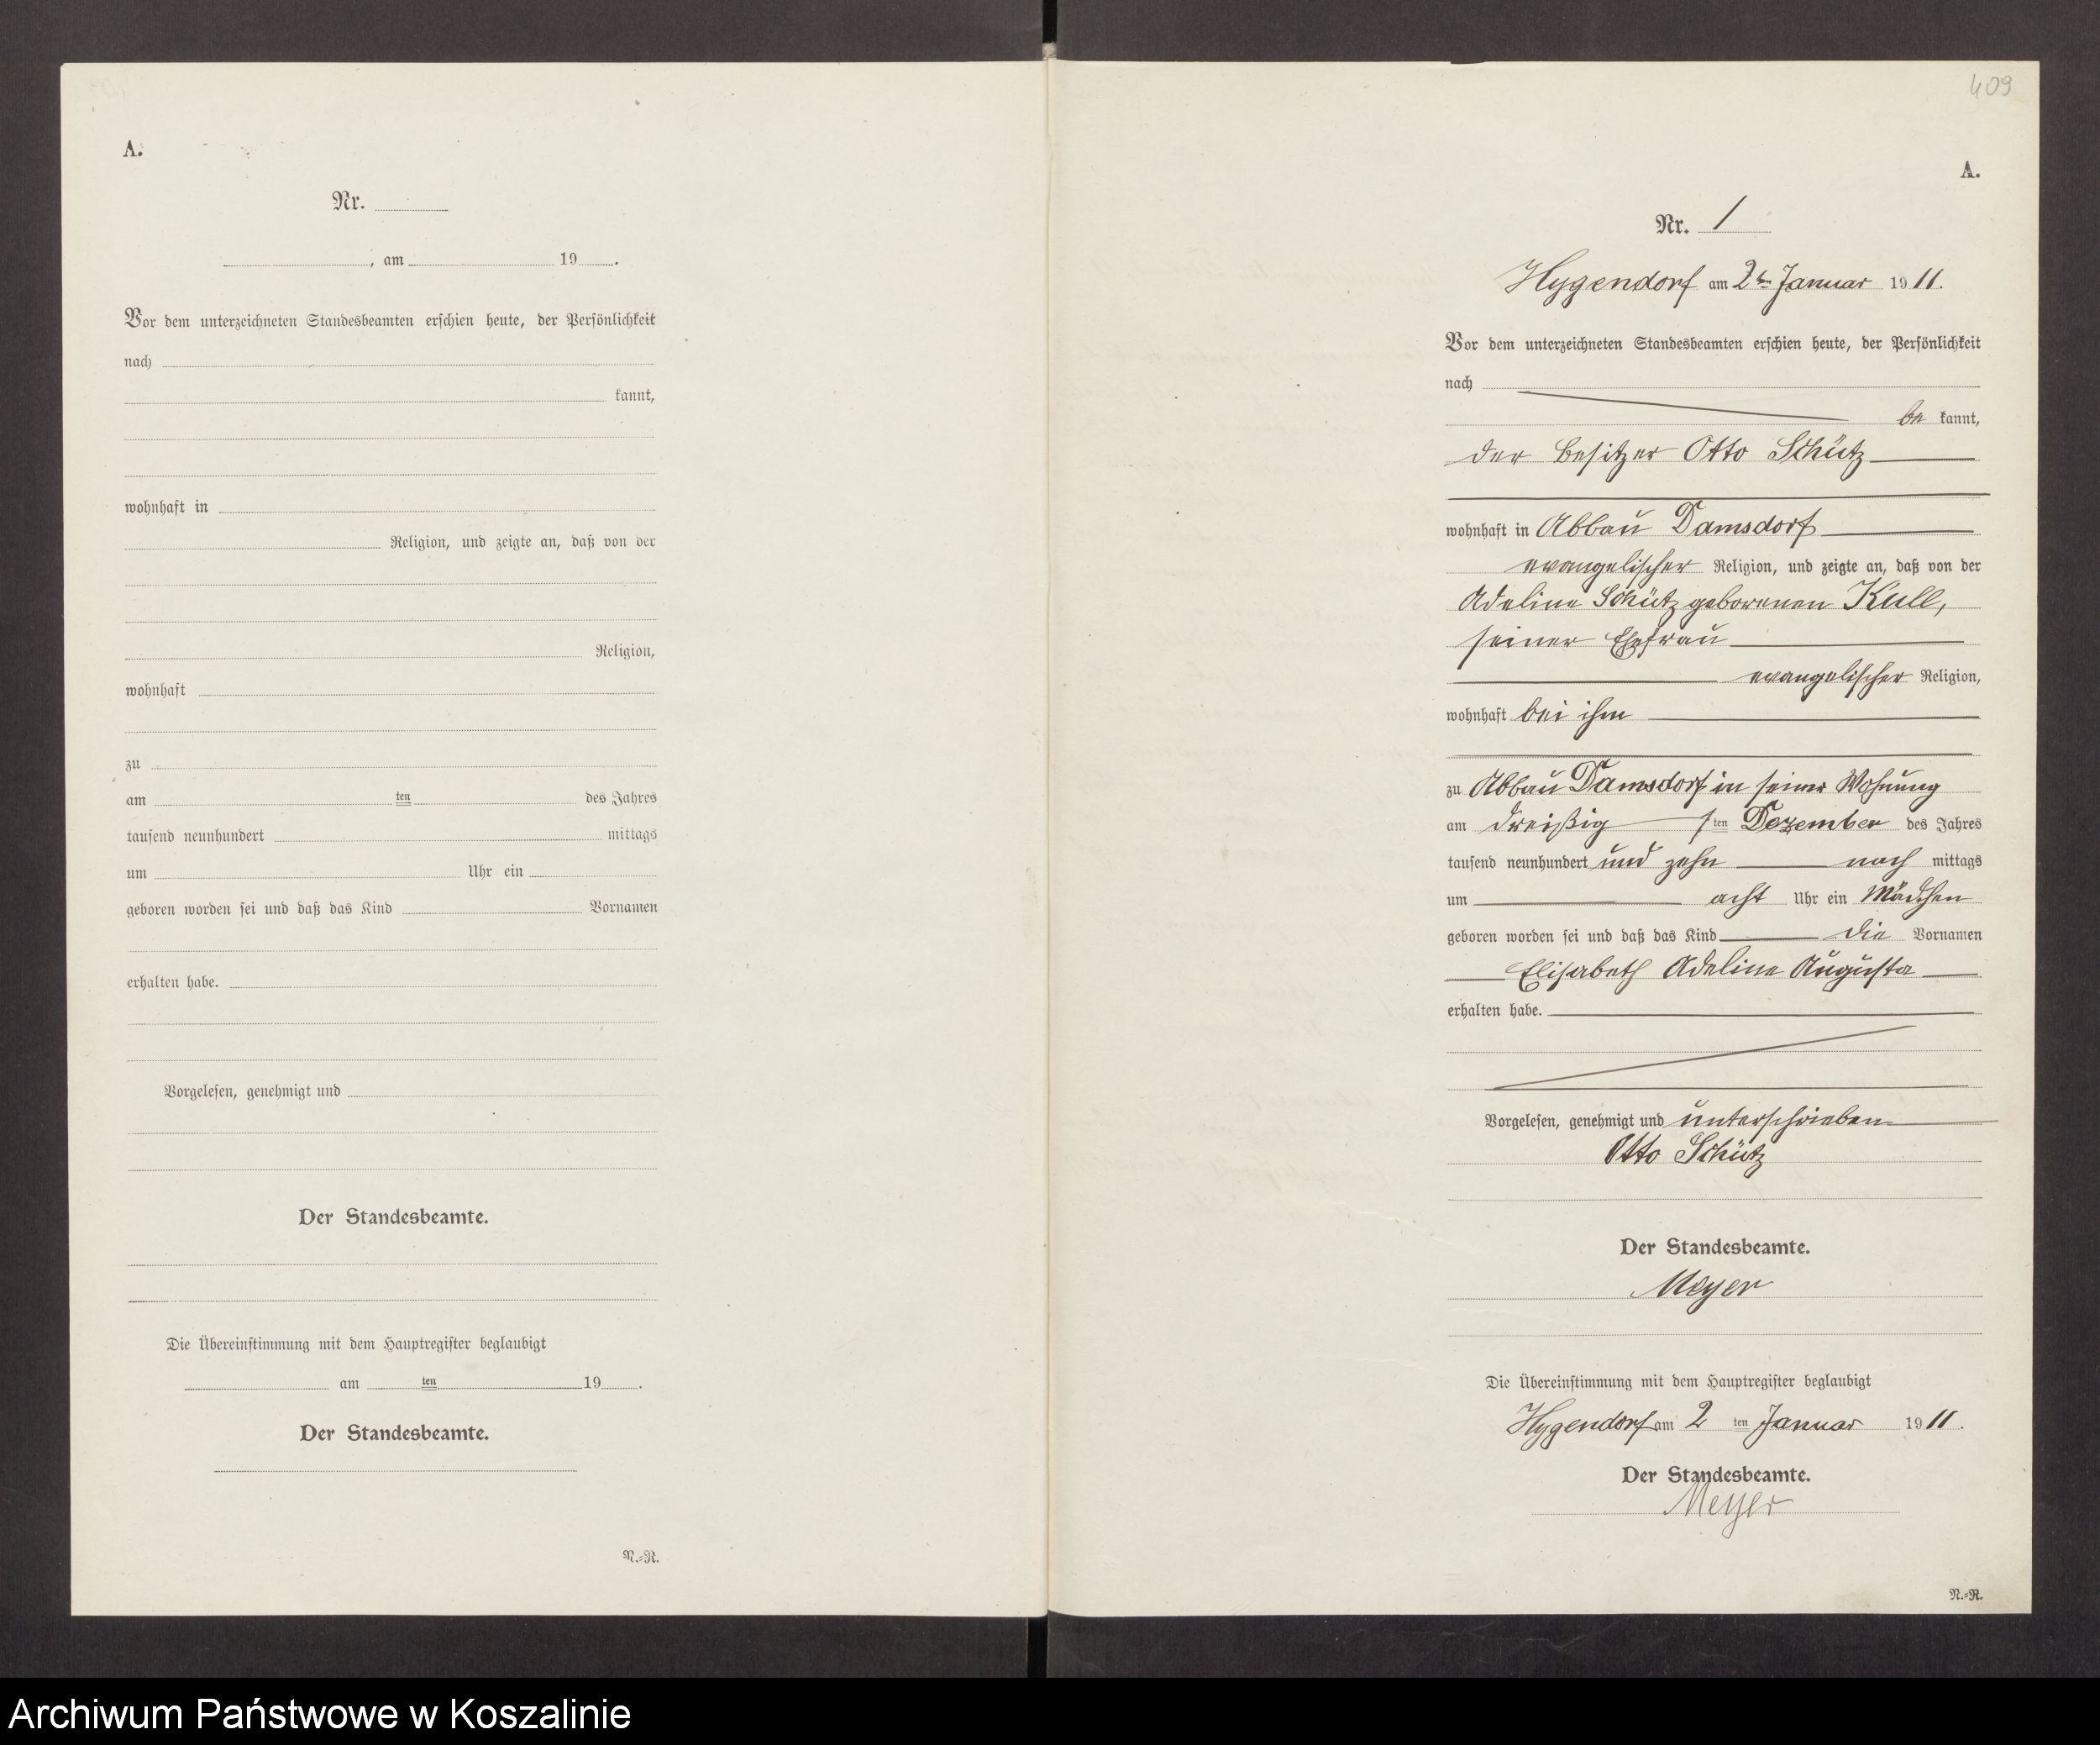 A.
Nr.
, am 19 .
Vor dem unterzeichneten Standesbeamten erschien heute, der Persönlichkeit
nach
kannt,
wohnhaft in
Religion, und zeigte an, daß von der
Religion,
wohnhaft
zu
am ten des Jahres
tausend neunhundert mittags
um Uhr ein
geboren worden sei und daß das Kind Vornamen
erhalten habe.
Vorgelesen, genehmigt und
Der Standesbeamte.
Die Übereinstimmung mit dem Hauptregister beglaubigt
am ten 19 .
Der Standesbeamte.
N.-R.
409
A.
Nr. 1
Hygendorf am 2ten Januar 1911.
Vor dem unterzeichneten Standesbeamten erschien heute, der Persönlichkeit
nach
be kannt,
der Besitzer Otto Schütz
wohnhaft in Abbau Damsdorf
evangelischer Religion, und zeigte an, daß von der
Adeline Schütz geborenen Kull,
seiner Ehefrau
evangelischer Religion,
wohnhaft bei ihm
zu Abbau Damsdorf in seiner Wohnung
am dreißig sten Dezember des Jahres
tausend neunhundert und zehn nach mittags
um acht Uhr ein Mädchen
geboren worden sei und daß das Kind die Vornamen
Elisabeth Adeline Augusta
erhalten habe.
Vorgelesen, genehmigt und unterschrieben
Otto Schütz
Der Standesbeamte.
Meyer
Die Übereinstimmung mit dem Hauptregister beglaubigt
Hygendorf am 2 ten Januar 1911.
Der Standesbeamte.
Meyer
N.-R.
Archiwum Państwowe w Koszalinie